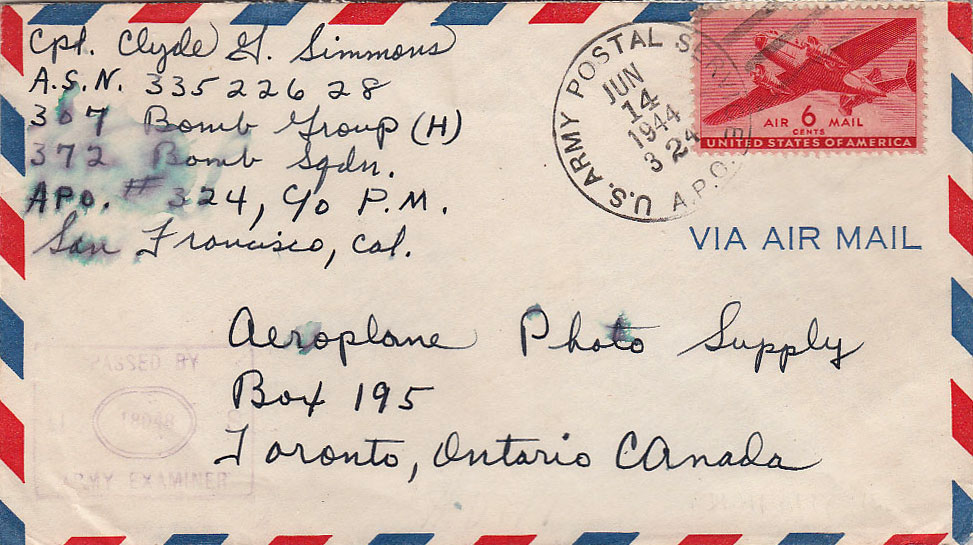 Cpl. Clyde G. Simmons
A.S.N. 33522628
307 Bomb Group (H)
372 Bomb Sqdn.
APO. # 324, C/O P.M.
San Francisco, Cal.
U.S. ARMY POSTAL SERVICE
JUN
14
1944
3 24
A.P.O.
AIR 6 MAIL
CENTS
UNITED STATES OF AMERICA
VIA AIR MAIL
Aeroplane Photo Supply
Box 195
Toronto, Ontario CAnada
PASSED BY
ARMY EXAMINER